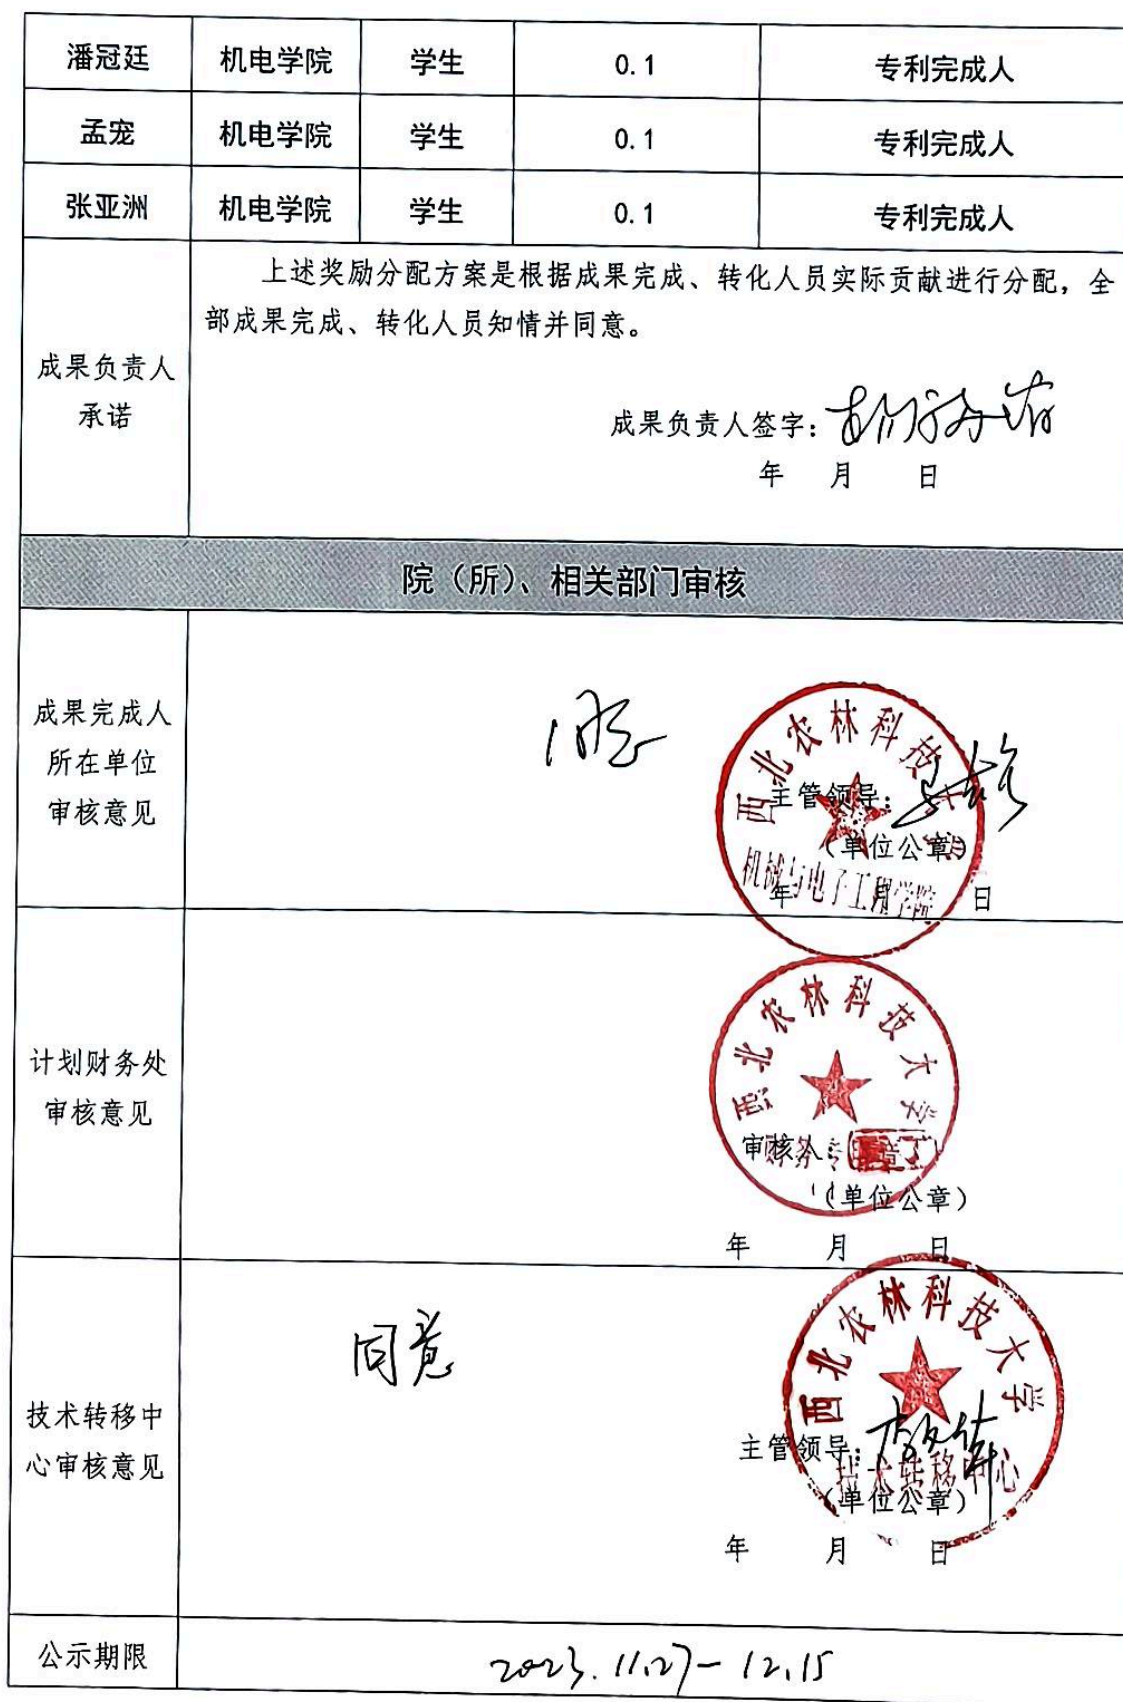 潘冠廷 机电学院 学生 0.1 专利完成人
孟宠 机电学院 学生 0.1 专利完成人
张亚洲 机电学院 学生 0.1 专利完成人
上述奖励分配方案是根据成果完成、转化人员实际贡献进行分配，全
部成果完成、转化人员知情并同意。
成果负责人
承诺
成果负责人签字：
年 月 日
院（所）、相关部门审核
成果完成人
所在单位
审核意见
西北农林科技大学
主管领导：
（单位公章）
机械与电子工程学院
年 月 日
计划财务处
审核意见
西北农林科技大学
审核人：
（单位公章）
年 月 日
技术转移中
心审核意见
同意
西北农林科技大学
主管领导：
技术转移中心
（单位公章）
年 月 日
公示期限
2023.11.27-12.15